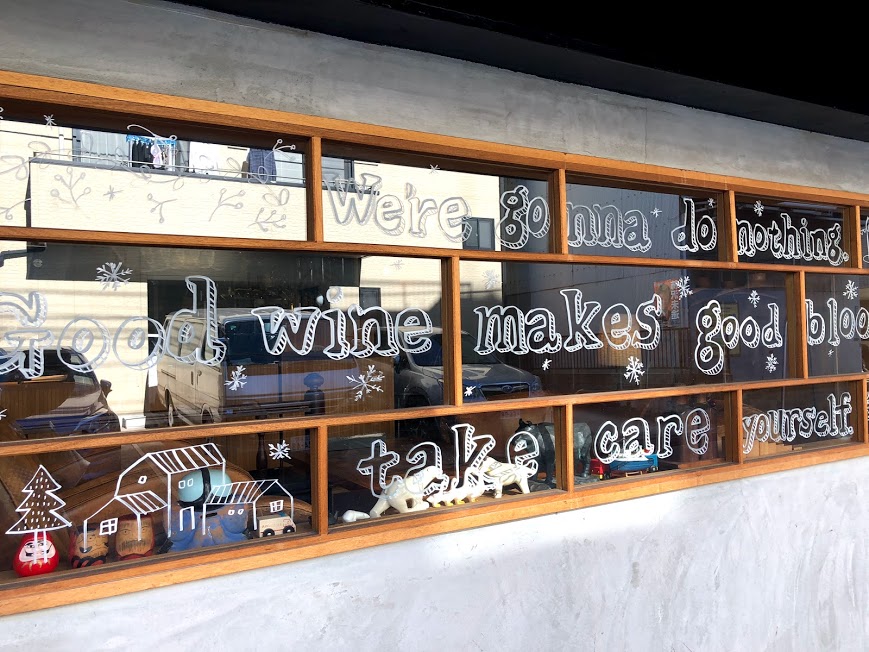 We're gonna do nothing.
Good wine makes good bloo
take care yourself.